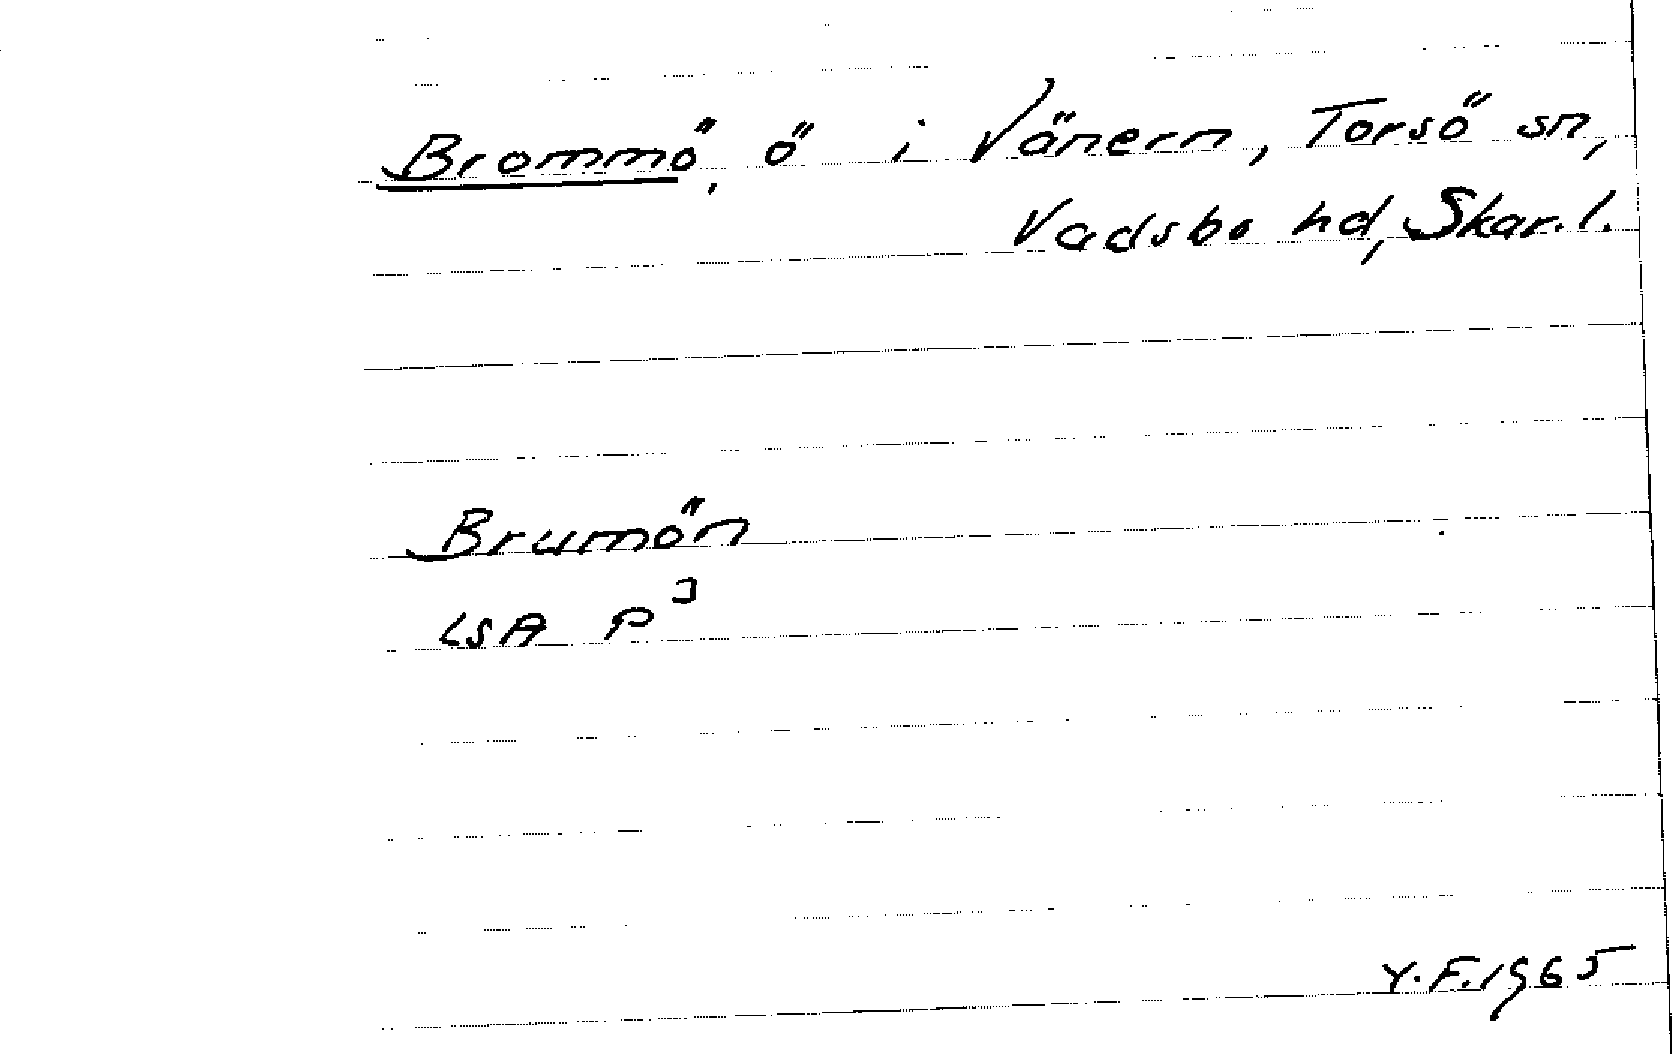 Brommö, ö i Vänern, Torsö sn,
Vadsbo hd, Skar. l.
Brumön
LSA P
Y.F. 1965